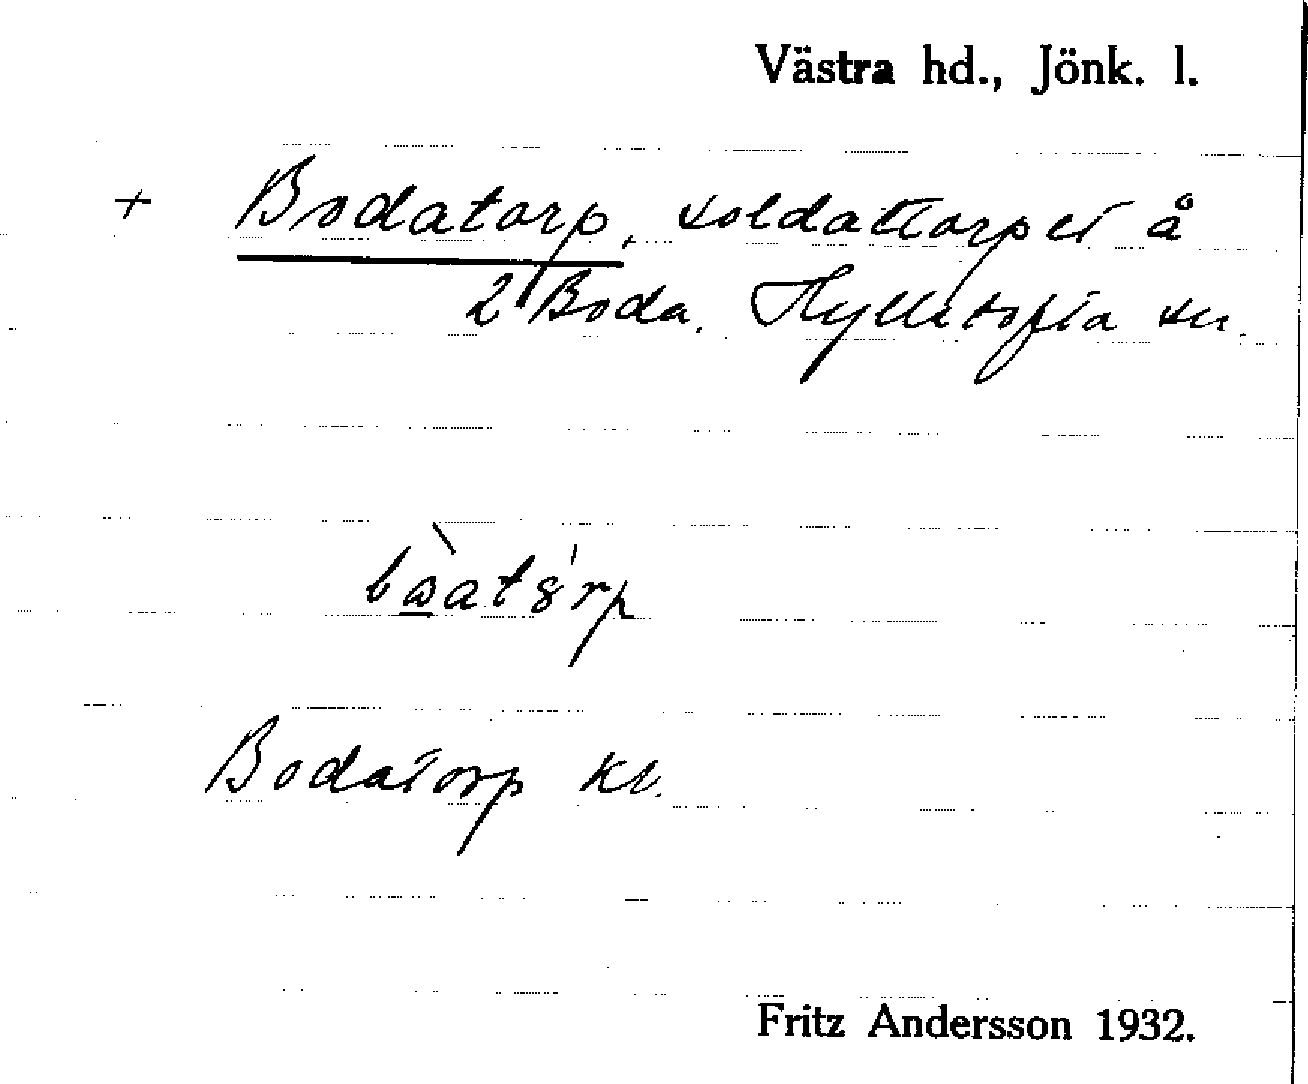 Västra hd., Jönk. l.
+ Bodatorp, soldattorpet å
2 Boda. Hylletofta sn.
Bodatorp kr.
Fritz Andersson 1932.